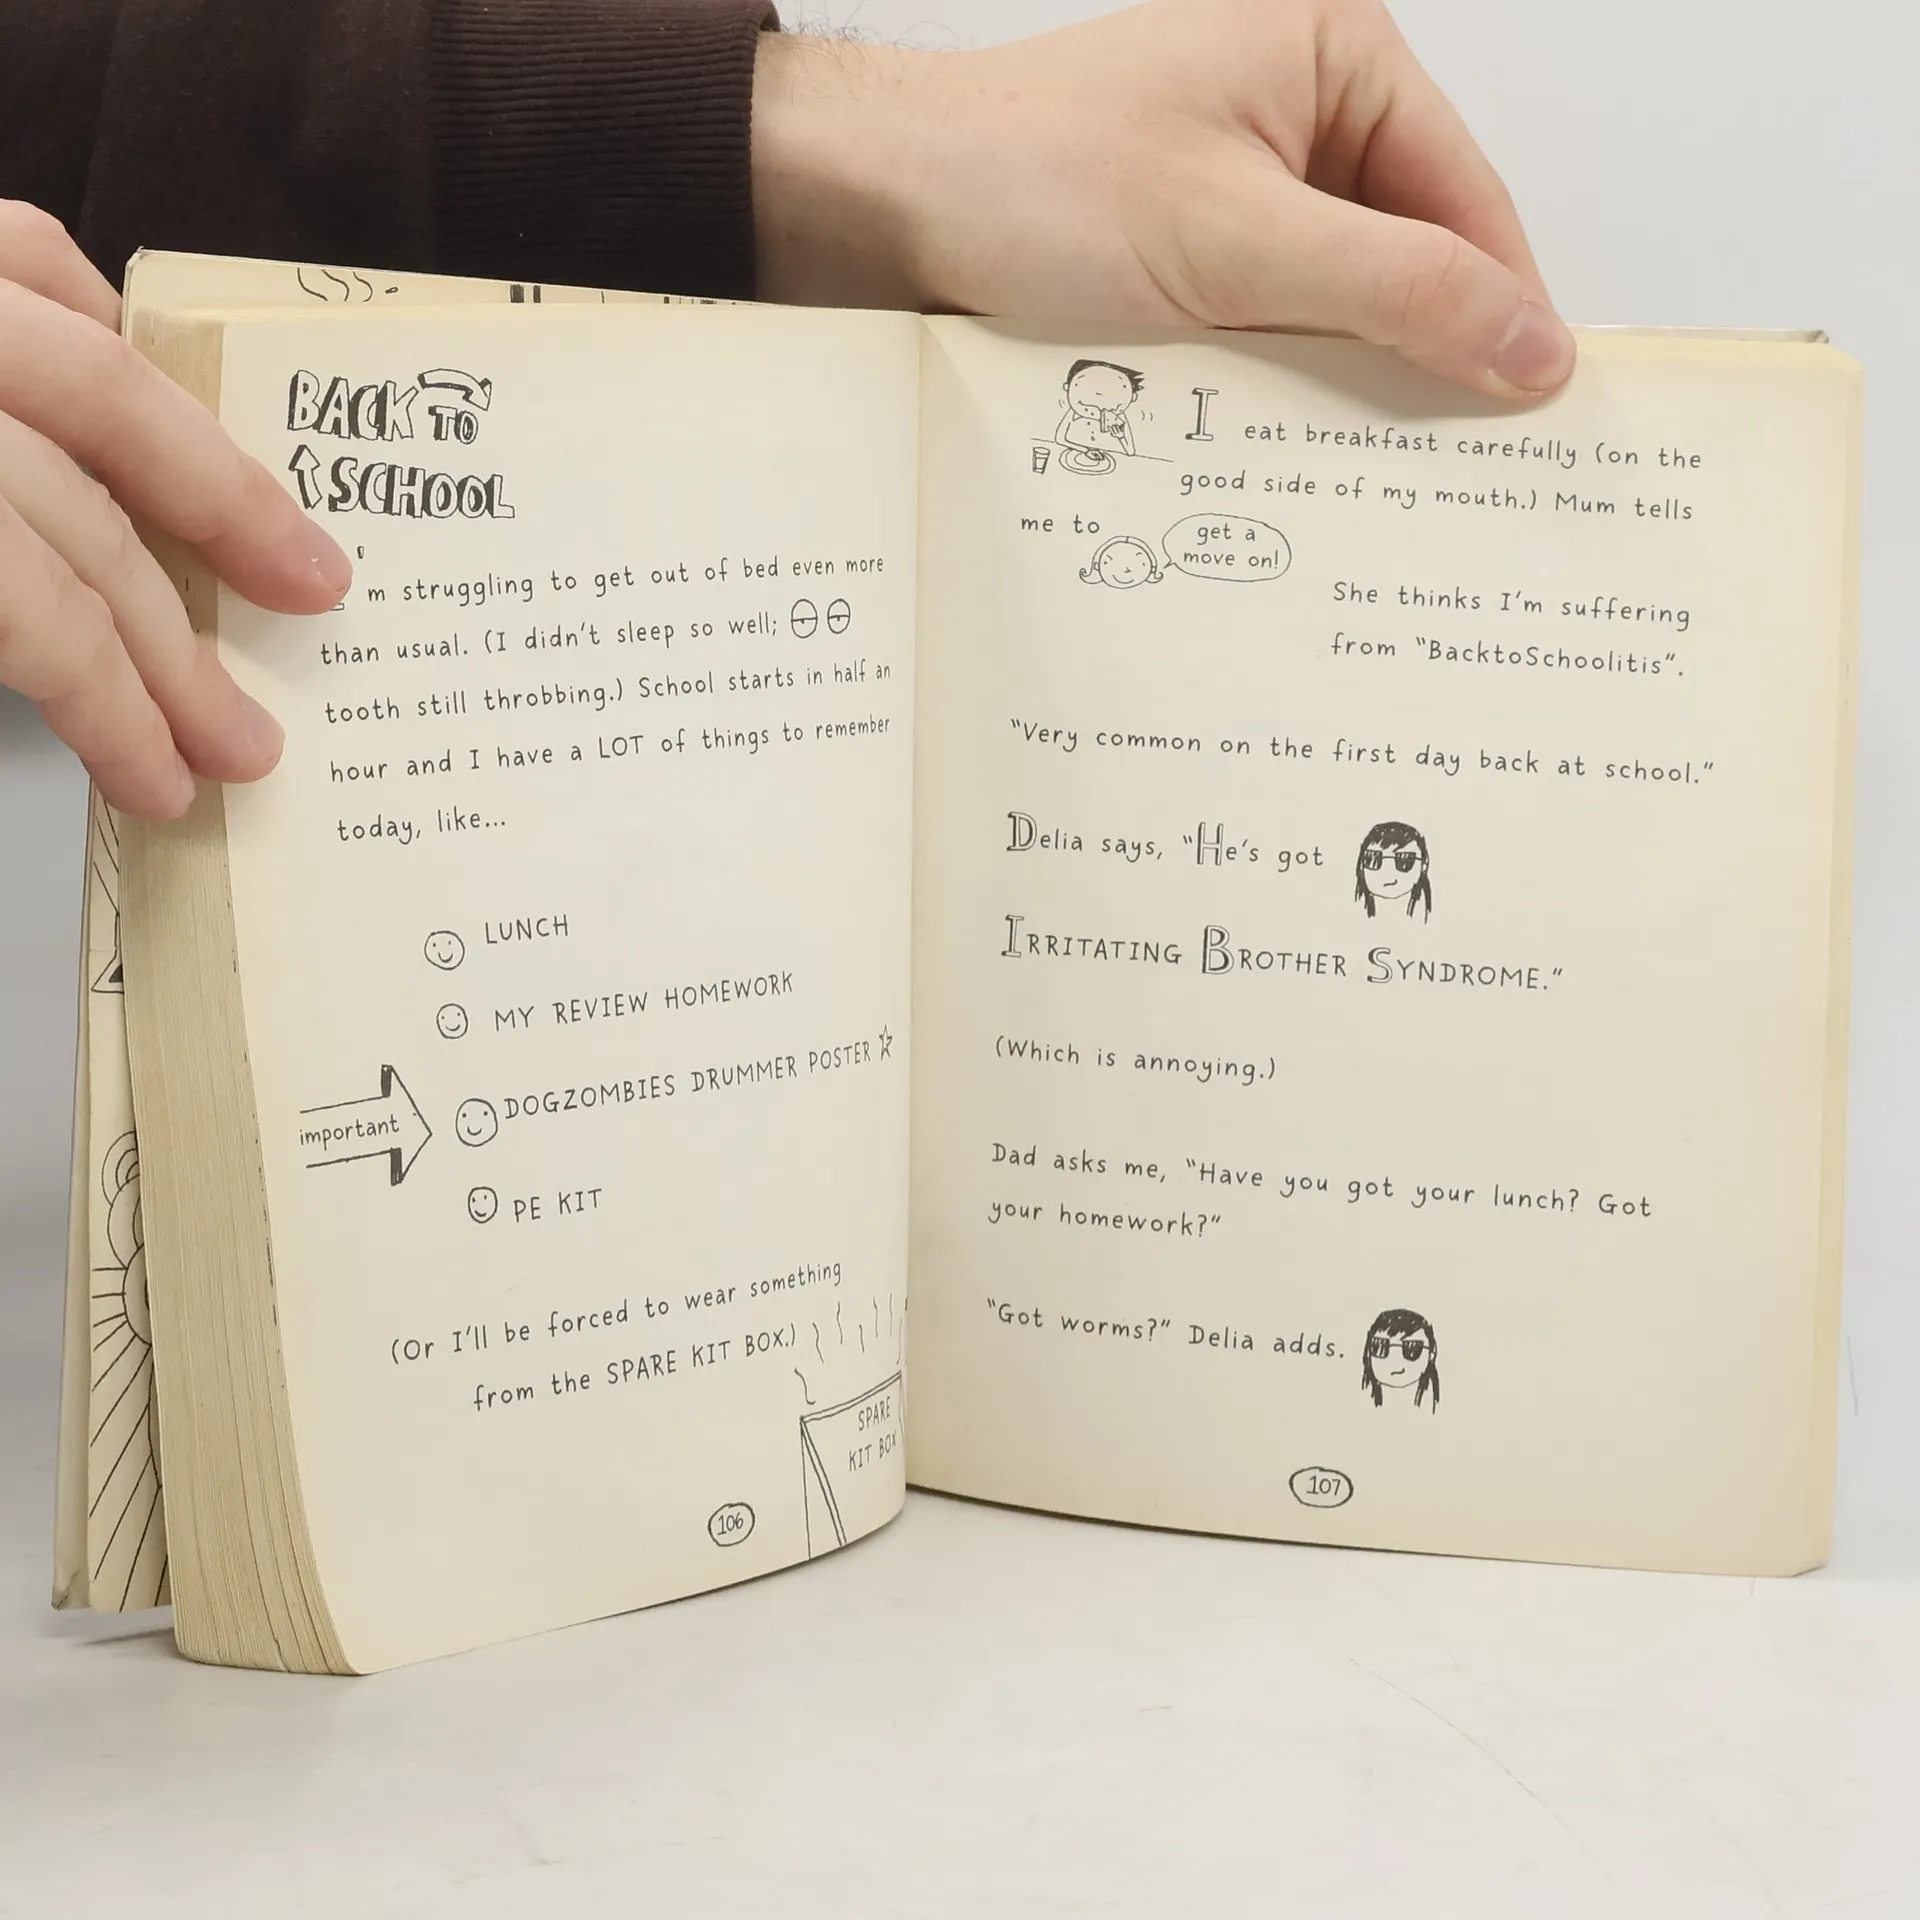 BACK TO
SCHOOL
'm struggling to get out of bed even more
than usual. (I didn't sleep so well;
tooth still throbbing.) School starts in half an
hour and I have a LOT of things to remember
today, like...
LUNCH
MY REVIEW HOMEWORK
DOGZOMBIES DRUMMER POSTER
important
PE KIT
(Or I'll be forced to wear something
from the SPARE KIT BOX.)
SPARE
KIT BOX
106
I eat breakfast carefully (on the
good side of my mouth.) Mum tells
me to
get a
move on!
She thinks I'm suffering
from "BacktoSchoolitis".
"Very common on the first day back at school."
Delia says, "He's got
IRRITATING BROTHER SYNDROME."
(Which is annoying.)
Dad asks me, "Have you got your lunch? Got
your homework?"
"Got worms?" Delia adds.
107